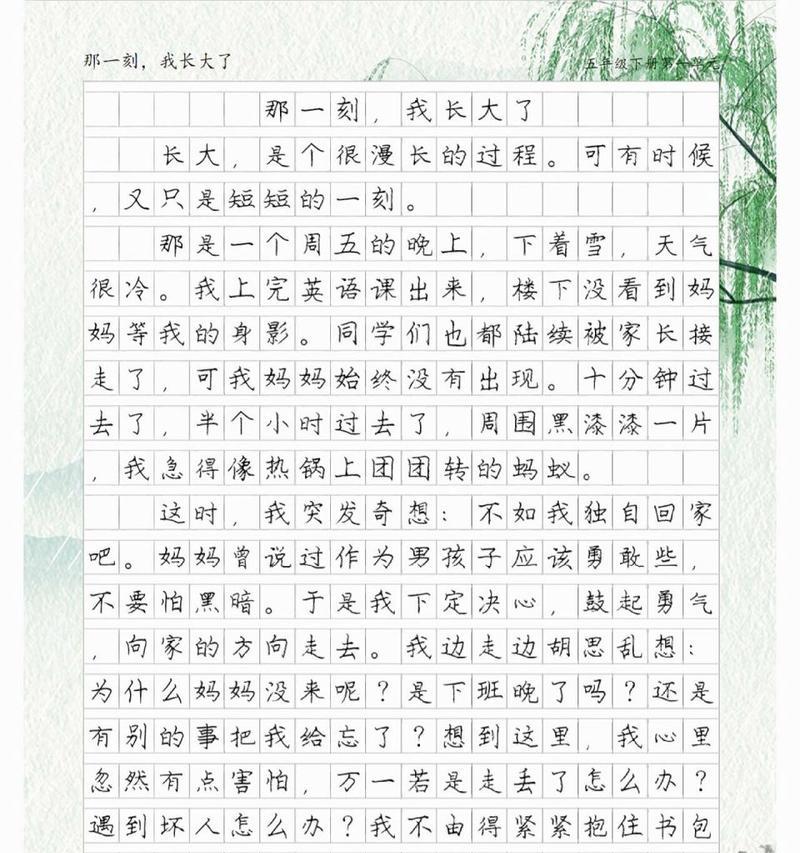 那一刻，我长大了
五年级下册第一单元
那一刻，我长大了
长大，是个很漫长的过程。可有时候
，又只是短短的一刻。
那是一个周五的晚上，下着雪，天气
很冷。我上完英语课出来，楼下没看到妈
妈等我的身影。同学们也都陆续被家长接
走了，可我妈妈始终没有出现。十分钟过
去了，半个小时过去了，周围黑漆漆一片
，我急得像热锅上团团转的蚂蚁。
这时，我突发奇想：不如我独自回家
吧。妈妈曾说过作为男孩子应该勇敢些，
不要怕黑暗。于是我下定决心，鼓起勇气
，向家的方向走去。我边走边胡思乱想：
为什么妈妈没来呢？是下班晚了吗？还是
有别的事把我给忘了？想到这里，我心里
忽然有点害怕，万一若是走丢了怎么办？
遇到坏人怎么办？我不由得紧紧抱住书包